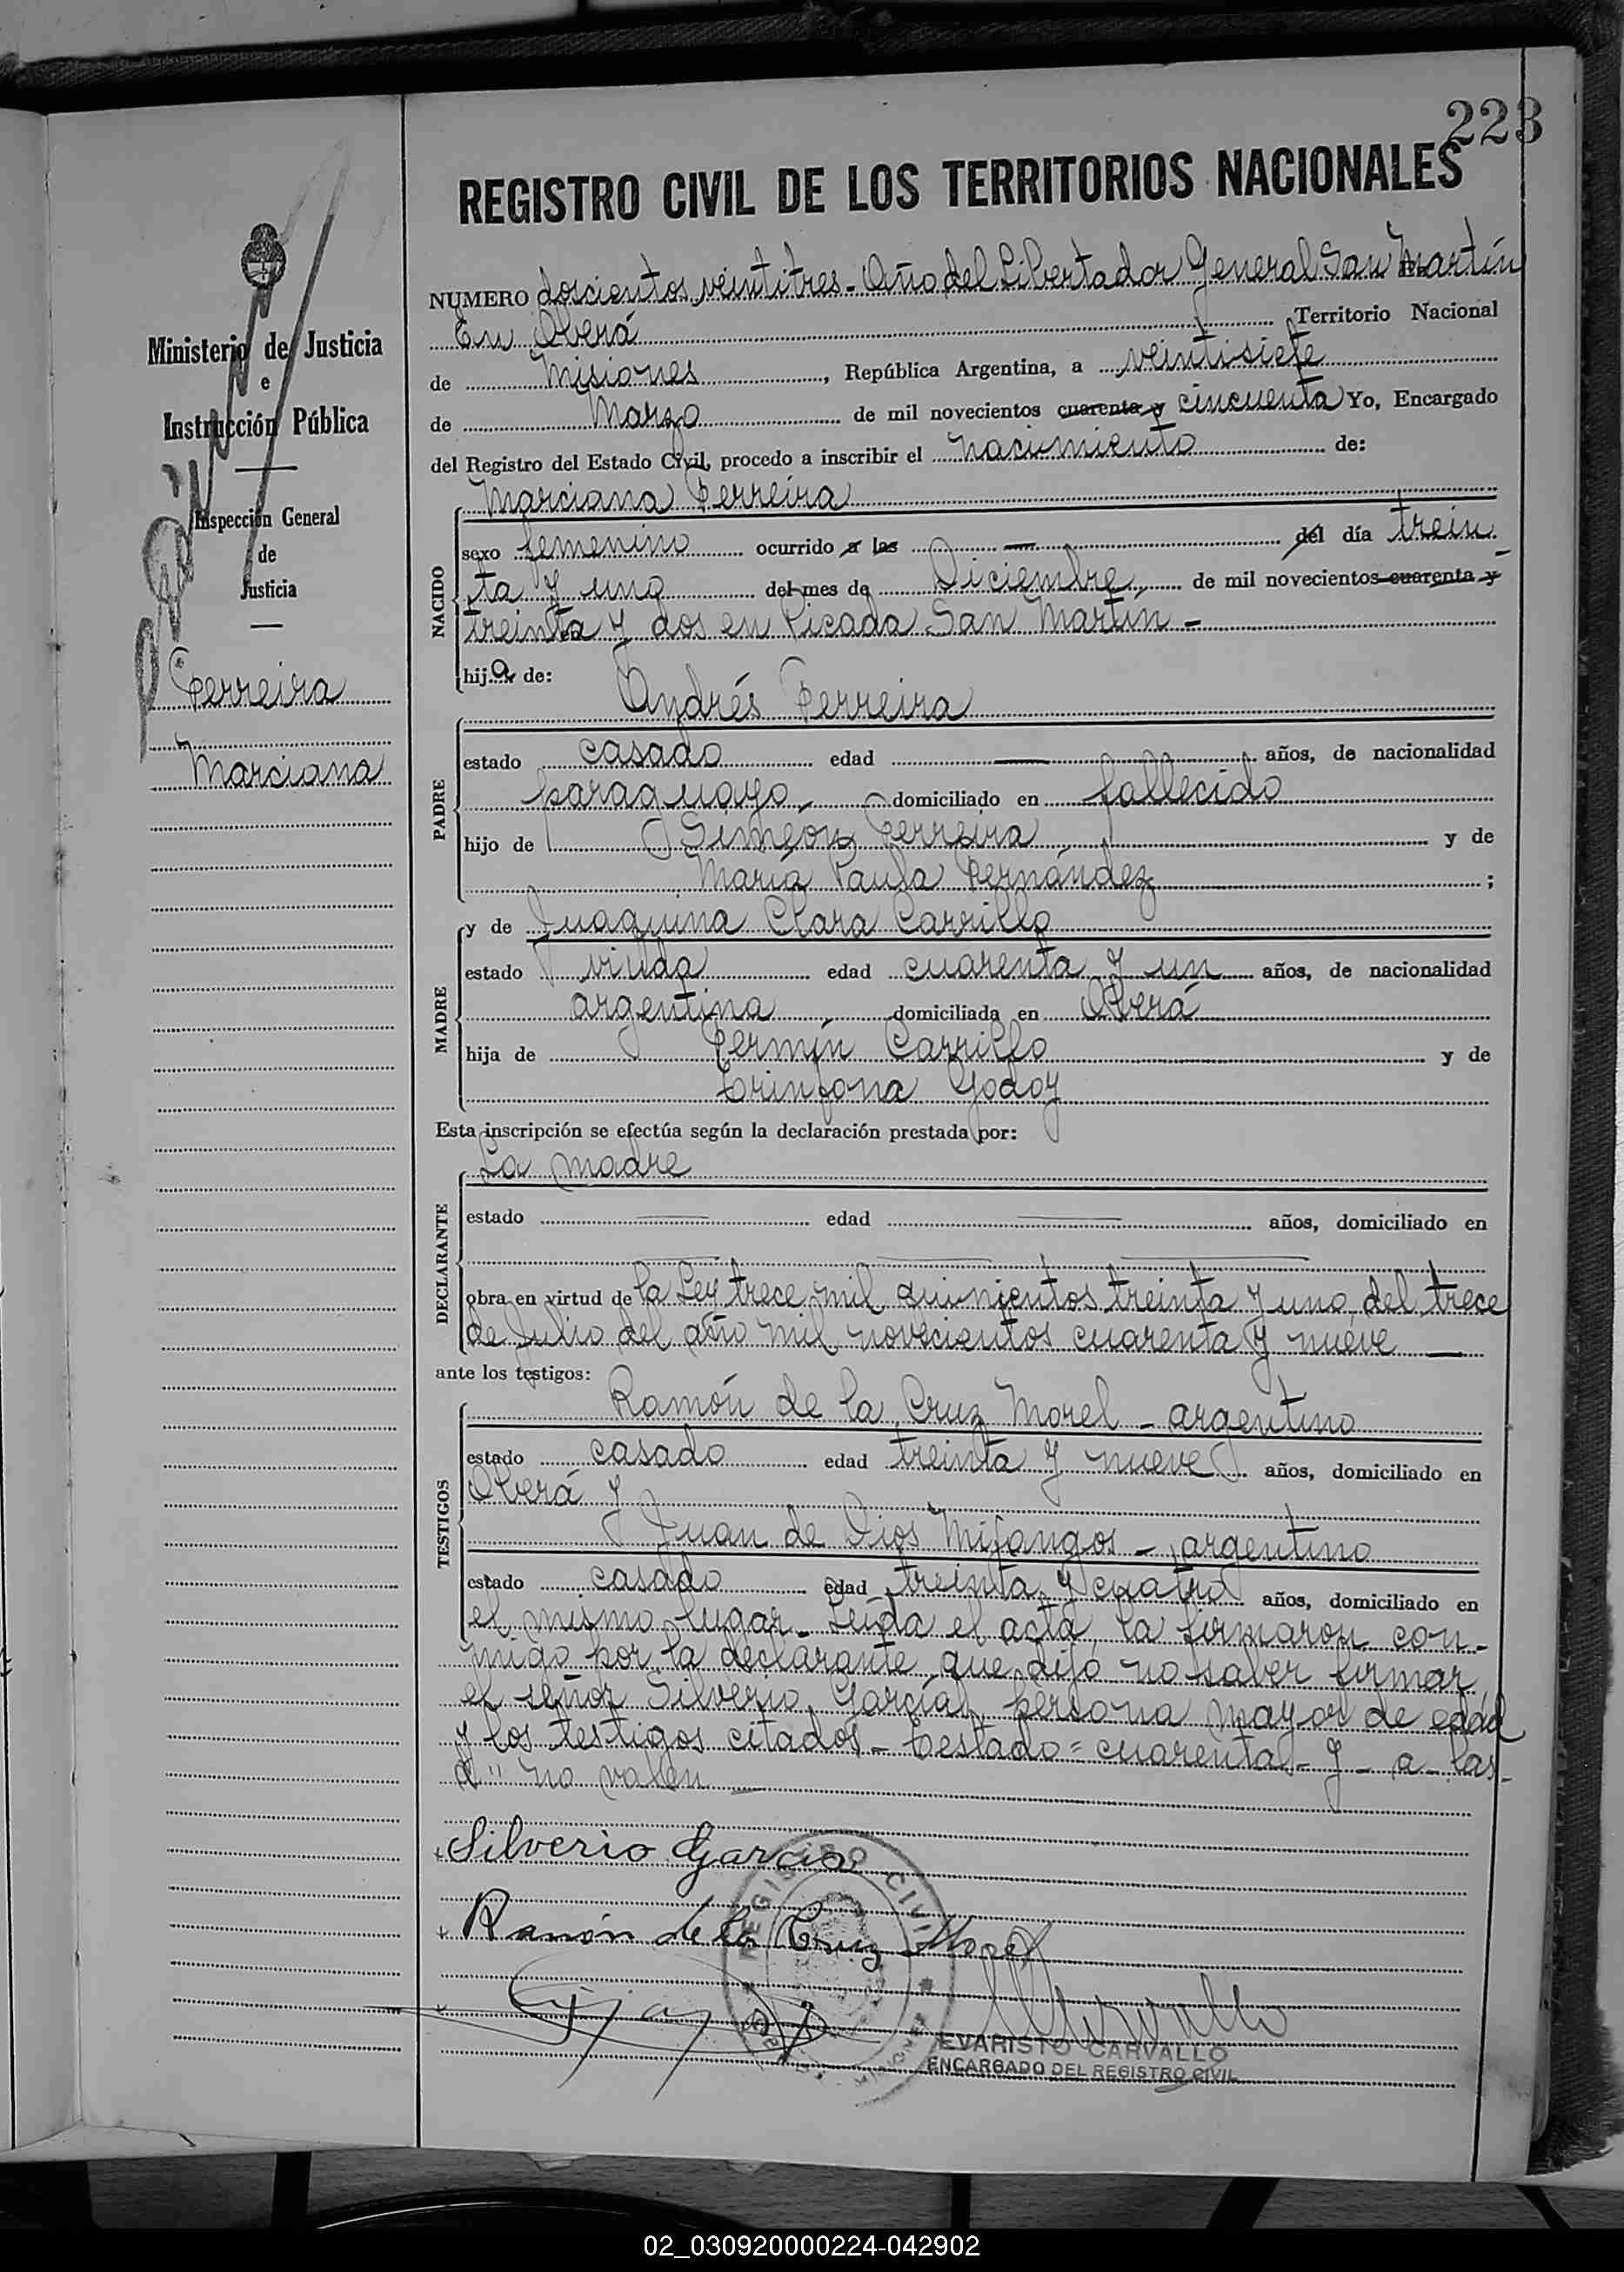 223
REGISTRO CIVIL DE LOS TERRITORIOS NACIONALES
NUMERO doscientos veintitres - Año del Libertador General San Martín
En Oberá Territorio Nacional
de Misiones, República Argentina, a veintisiete
de Marzo de mil novecientos cuarenta y cincuenta Yo, Encargado
del Registro del Estado Civil, procedo a inscribir el nacimiento de:
Marciana Ferreira
NACIDO
sexo femenino ocurrido a las — del día trein-
ta y uno del mes de Diciembre de mil novecientos cuarenta y
treinta y dos en Picada San Martín -
hija de:
Andrés Ferreira
PADRE
estado casado edad — años, de nacionalidad
paraguayo domiciliado en fallecido
hijo de Simeón Ferreira y de
María Paula Fernández ;
y de Juaquina Clara Carrillo
MADRE
estado viuda edad cuarenta y un años, de nacionalidad
argentina domiciliada en Oberá
hija de Fermín Carrillo y de
Trinfona Godoy
Esta inscripción se efectúa según la declaración prestada por:
La madre
DECLARANTE
estado — edad — años, domiciliado en
obra en virtud de la Ley trece mil quinientos treinta y uno del trece
de Julio del año mil novecientos cuarenta y nueve —
ante los testigos:
Ramón de la Cruz Morel - argentino
TESTIGOS
estado casado edad treinta y nueve años, domiciliado en
Oberá y
Juan de Dios Mijangos - argentino
estado casado edad treinta y cuatro años, domiciliado en
el mismo lugar - Leída el acta, la firmaron con-
migo por la declarante que dijo no saber firmar,
el señor Silverio García, persona mayor de edad
y los testigos citados - Testado = cuarenta - y - a - las -
d" no valen —
Silverio Garcia
Ramón de la Cruz Morel
REGISTRO CIVIL
MISIONES
EVARISTO CARVALLO
ENCARGADO DEL REGISTRO CIVIL
Ministerio de Justicia
e
Instrucción Pública
Inspección General
de
Justicia
Ferreira
Marciana
02_030920000224-042902